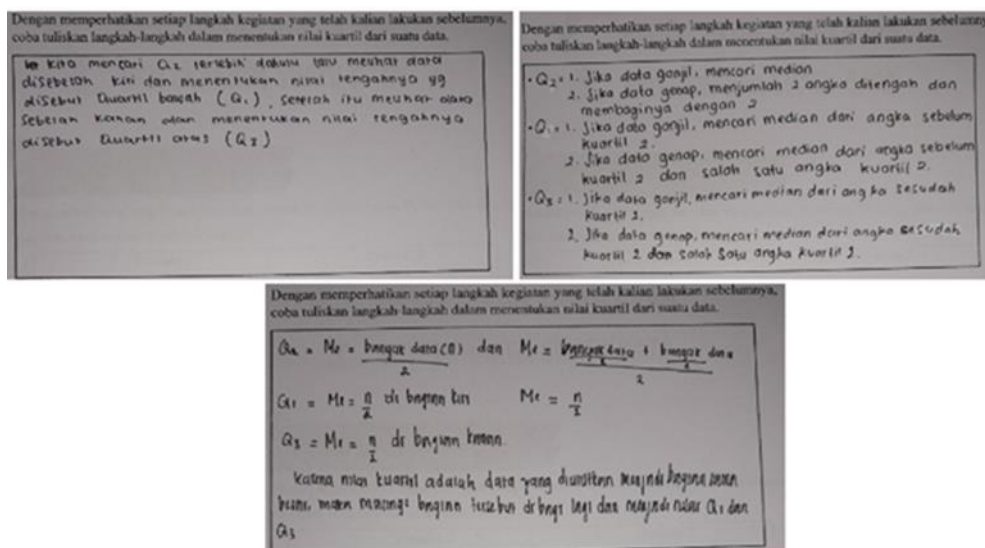 Dengan memperhatikan setiap langkah kegiatan yang telah kalian lakukan sebelumnya,
coba tuliskan langkah-langkah dalam menentukan nilai kuartil dari suatu data.
Kita mencari Q2 terlebih dahulu lalu melihat data
disebelah kiri dan menentukan nilai tengahnya yg
disebut Quartil bawah (Q1), setelah itu melihat data
Sebelah kanan dan menentukan nilai tengahnya
disebut Quartil atas (Q3)
Dengan memperhatikan setiap langkah kegiatan yang telah kalian lakukan sebelumny
coba tuliskan langkah-langkah dalam menentukan nilai kuartil dari suatu data.
• Q2 = 1. Jika data ganjil, mencari median
2. Jika data genap, menjumlah 2 angka ditengah dan
membaginya dengan 2
• Q1 = 1. Jika data ganjil, mencari median dari angka sebelum
kuartil 2.
2. Jika data genap, mencari median dari angka sebelum
kuartil 2 dan salah satu angka kuartil 2.
• Q3 = 1. Jika data ganjil, mencari median dari angka sesudah
kuartil 2.
2. Jika data genap, mencari median dari angka sesudah
kuartil 2 dan salah satu angka kuartil 2.
Dengan memperhatikan setiap langkah kegiatan yang telah kalian lakukan sebelumnya,
coba tuliskan langkah-langkah dalam menentukan nilai kuartil dari suatu data.
Q2 = Me = banyak data (n) dan Me = banyak data + banyak data
2 2 2
2
Q1 = Me = n/2 di bagian kiri Me = n/2
Q3 = Me = n/2 di bagian kanan.
Karena nilai kuartil adalah data yang diurutkan menjadi bagian sama
maka bagian tersebut di bagi lagi dan menjadi nilai Q1 dan
Q3